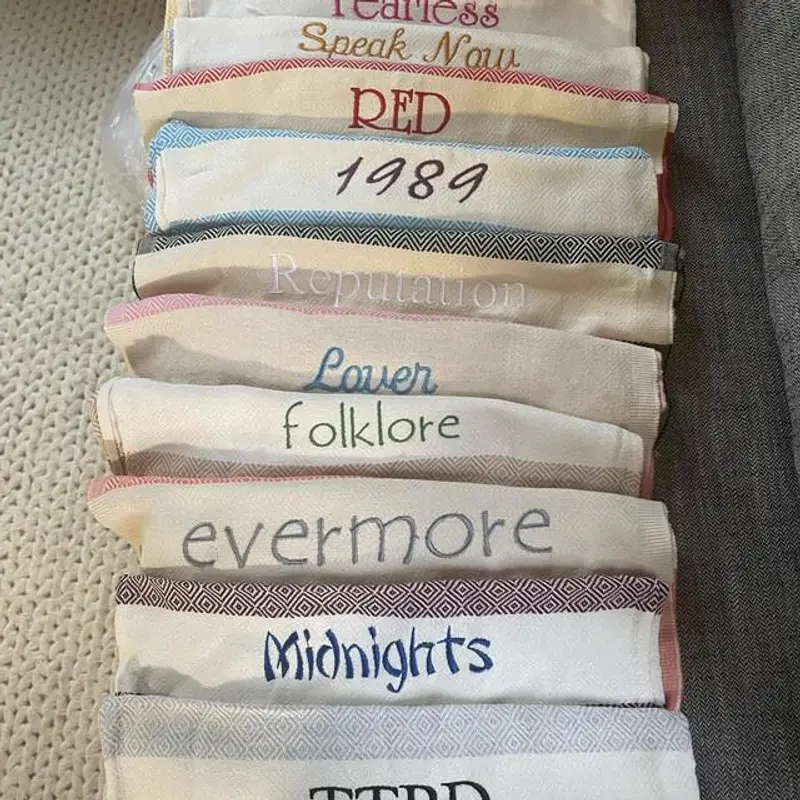 Fearless
Speak Now
RED
1989
Reputation
Lover
folklore
evermore
Midnights
TTPD